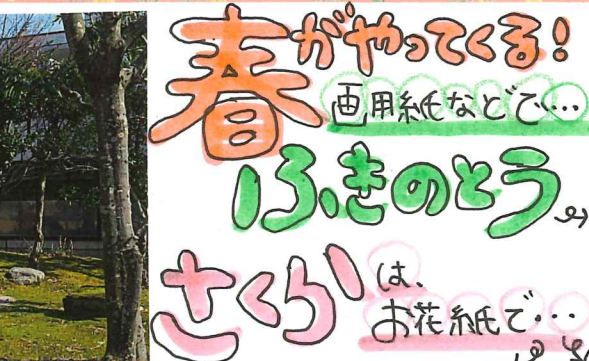 春がやってくる!
画用紙などで…
ふきのとう
さくら
は、
お花紙で…